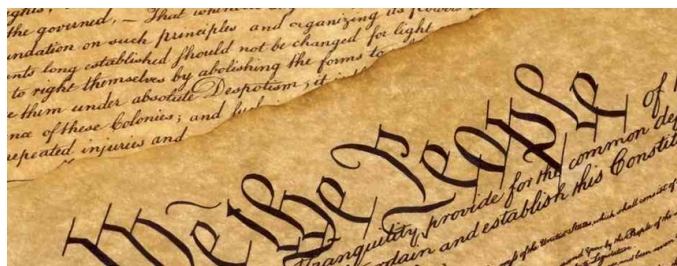 the governed, — That whenever
undation on such principles and organizing its powers
ents long established should not be changed for light
to right themselves by abolishing the forms to
e them under absolute Despotism; it is
nce of these Colonies; and
repeated injuries and
We the People of
Tranquility, provide for the common
ordain and establish this Constit
of the United States, which shall consist of
by the People of the